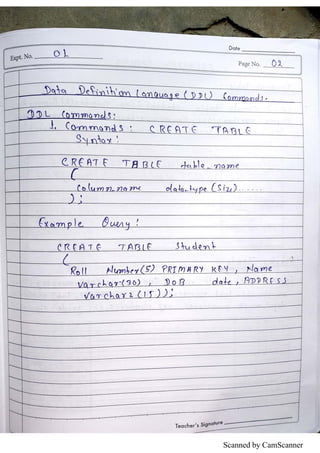 Date
Expt. No. 01
Page No. 02
Data Definition Language (DDL) Commands.
DDL Commands:
1. Commands : CREATE TABLE
Syntax:
CREATE TABLE table_name
(
Column_name data_type (Size)......
);
Example Query:
CREATE TABLE Student
(
Roll Number(5) PRIMARY KEY, Name
Varchar(30), DOB date, ADDRESS
Varchar2(15));
Teacher's Signature
Scanned by CamScanner